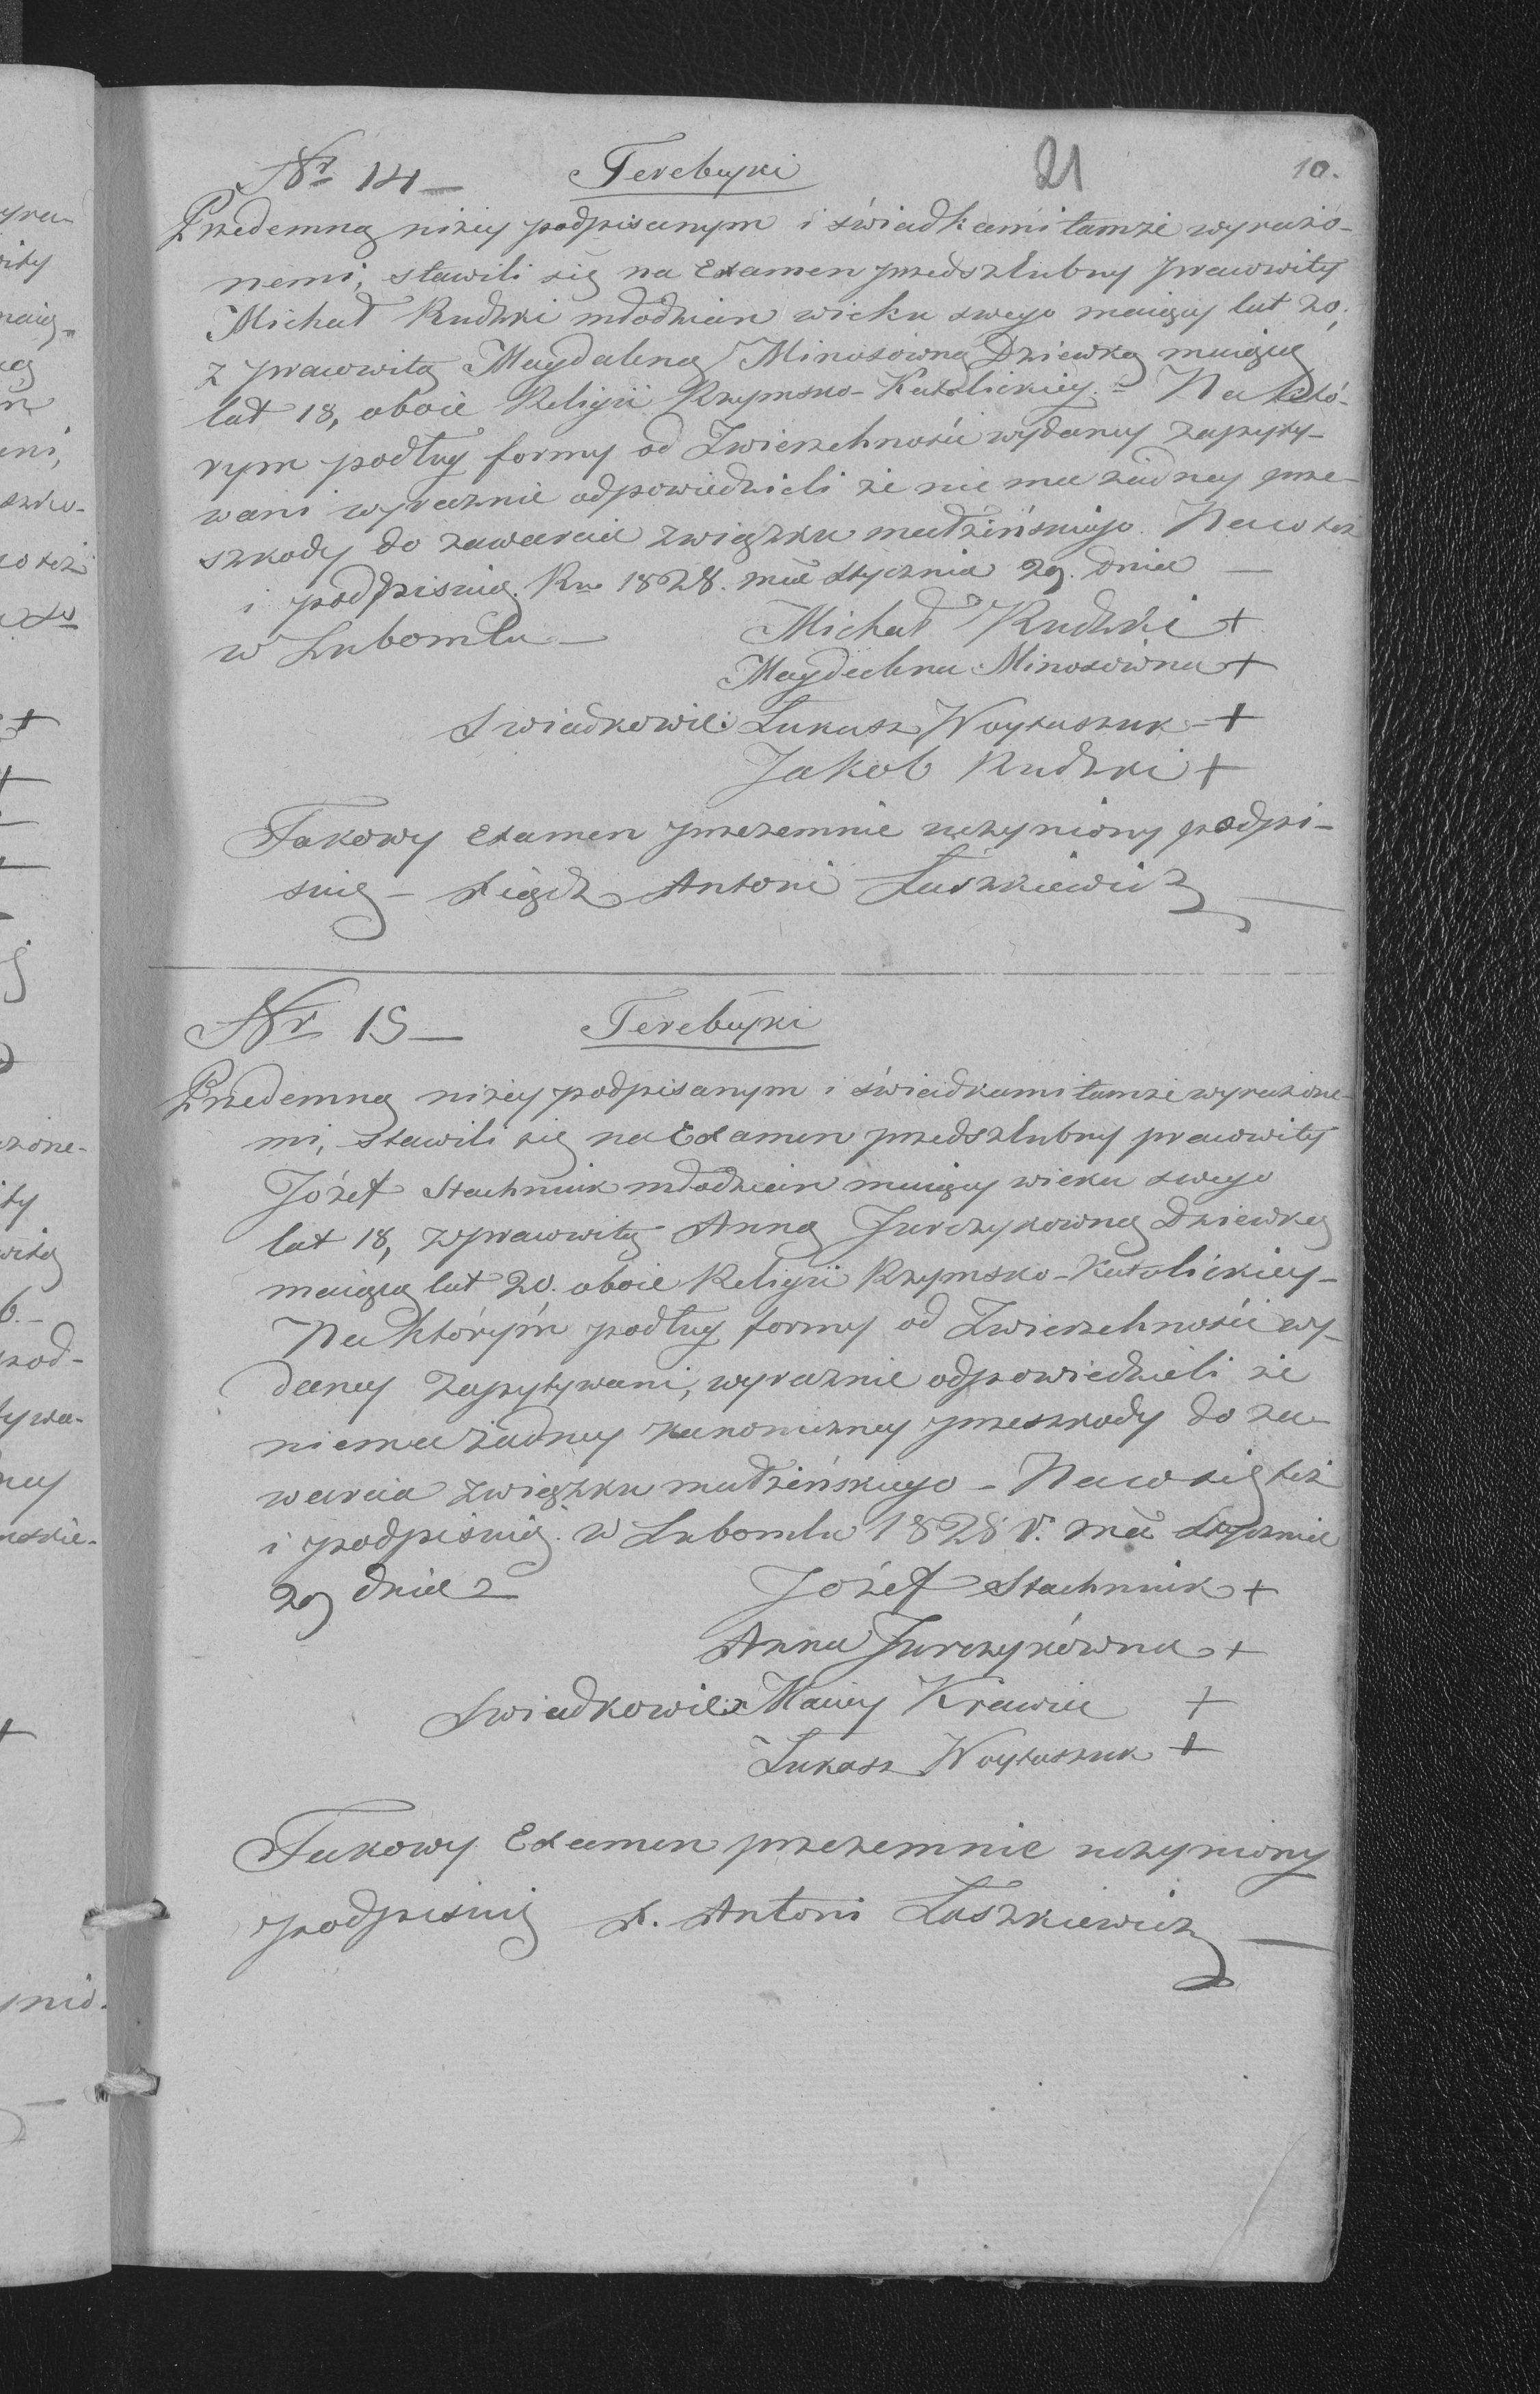 Nr 14 — Terebeyki 21 10.
Przedemną niżey podpisanym i świadkami tamże wyrażo-
nemi, stawili się na Examen przedszlubny prawowity
Michał Rudzki młodzian wieku swego maiący lat 20,
z prawowitą Magdaleną Minosowną Dziewką maiącą
lat 18, oboie Religii Rzymsko-Katolickiey. - Na któ-
rym podług formy od Zwierzchności wydaney zapyty-
wani wyraznie odpowiedzieli że nie ma żadney prze-
szkody do zawarcia związku małżeńskiego. Na co też
i podpisuią. Ru 1828. mca Stycznia 29. dnia —
w Lubomlu — Michał Rudzki +
Magdalena Minosowna +
Swiadkowie: Łukasz Woytaszuk - +
Jakob Rudzki +
Takowy Examen przezemnie uczyniony podpi-
suię - Xiądz Antoni Łaszkiewicz —
Nr 15 — Terebeyki
Przedemną niżey podpisanym i świadkami tamże wyrażone-
mi, stawili się na Examen przedszlubny prawowity
Józef Stachniuk młodzian maiący wieku swego
lat 18, z prawowitą Anną Jurczykowną Dziewką
maiącą lat 20. oboie Religii Rzymsko-Katolickiey -
Na którym podług formy od Zwierzchności wy-
daney zapytywani, wyraznie odpowiedzieli że
niema żadney kanoniczney przeszkody do za-
warcia związku małżeńskiego - Na co się też
i podpisuią. w Lubomlu 1828 r. mca Stycznia
29 dnia Józef Stachniuk +
Anna Jurczykówna +
Swiadkowie: Maciey Krawiec +
Łukasz Woytaszuk +
Takowy Examen przezemnie uczyniony
podpisuię X. Antoni Łaszkiewicz —